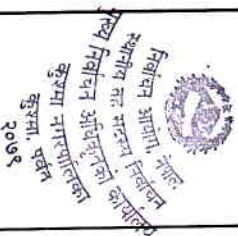 निर्वाचन आयोग, नेपाल
स्थानीय तह सदस्य निर्वाचन
मुख्य निर्वाचन अधिकृतको कार्यालय
कुश्मा नगरपालिका
कुश्मा, पर्वत
२०७९